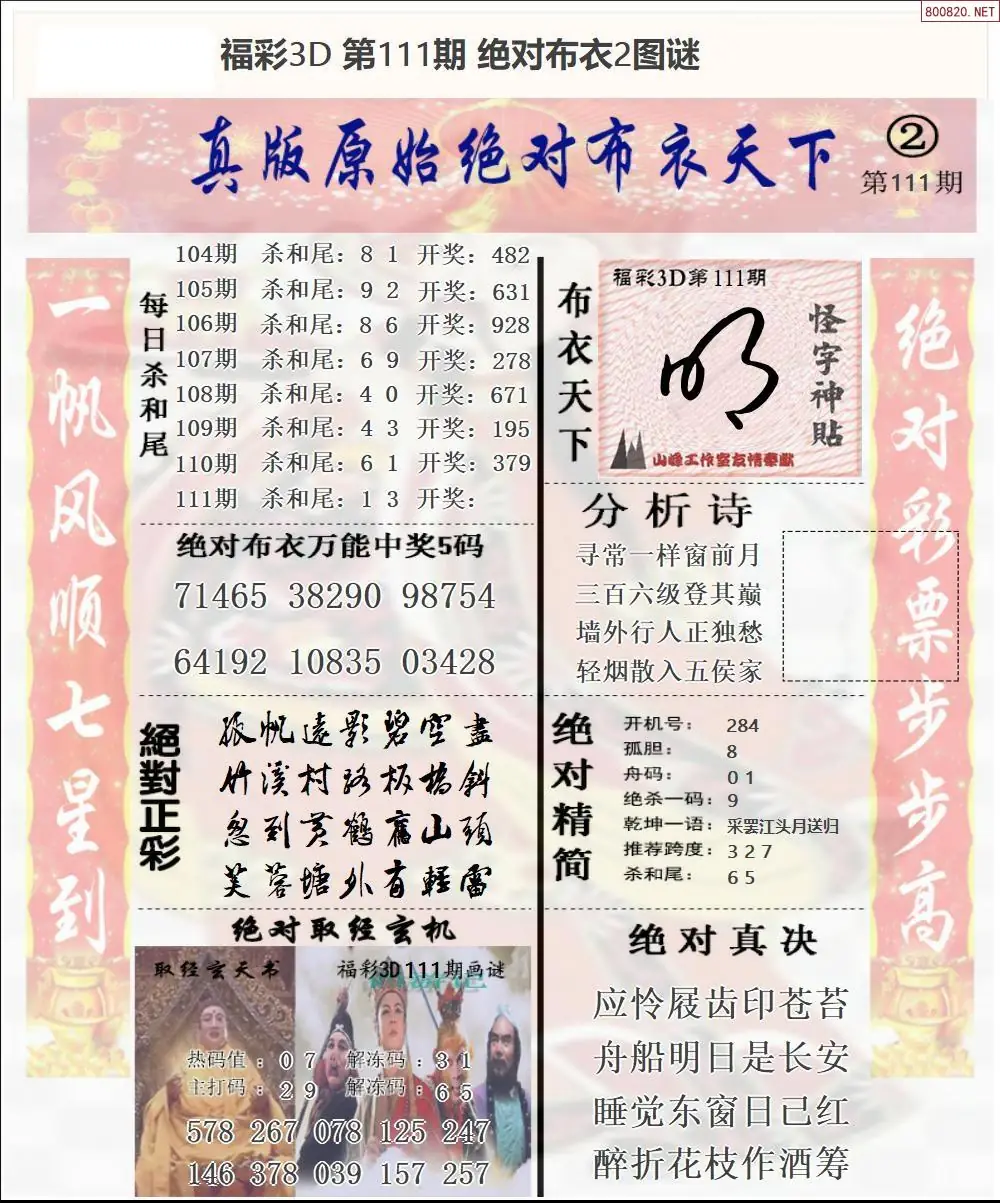 800820.NET
福彩3D 第111期 绝对布衣2图谜
真版原始绝对布衣天下
②
第111期
一帆风顺七星到
每日杀和尾
104期 杀和尾：8 1 开奖：482
105期 杀和尾：9 2 开奖：631
106期 杀和尾：8 6 开奖：928
107期 杀和尾：6 9 开奖：278
108期 杀和尾：4 0 开奖：671
109期 杀和尾：4 3 开奖：195
110期 杀和尾：6 1 开奖：379
111期 杀和尾：1 3 开奖：
绝对布衣万能中奖5码
71465 38290 98754
64192 10835 03428
絕對正彩
孤帆遠影碧空盡
竹溪村路板橋斜
忽到黃鶴舊山頭
芙蓉塘外有輕雷
绝对取经玄机
取经玄天书
福彩3D111期画谜
热码值：0 7 解冻码：3 1
主打码：2 9 解冻码：6 5
578 267 078 125 247
146 378 039 157 257
布衣天下
福彩3D第111期
怪字神貼
山峰工作室友情奉献
分析诗
寻常一样窗前月
三百六级登其巅
墙外行人正独愁
轻烟散入五侯家
绝对精简
开机号：284
孤胆：8
舟码：0 1
绝杀一码：9
乾坤一语：采罢江头月送归
推荐跨度：3 2 7
杀和尾：6 5
绝对真决
应怜屐齿印苍苔
舟船明日是长安
睡觉东窗日已红
醉折花枝作酒筹
绝对彩票步步高